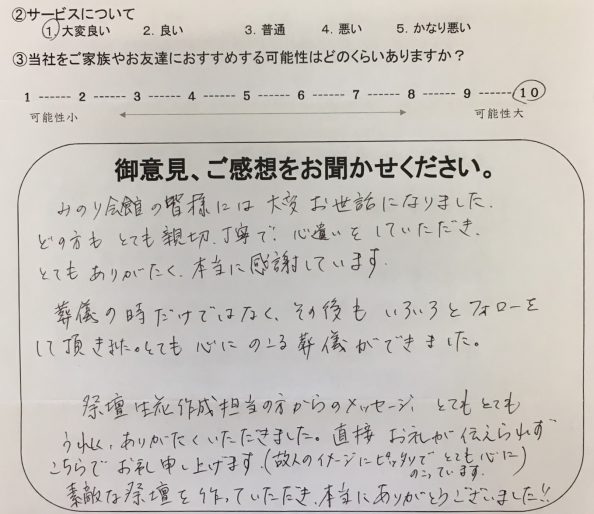 ②サービスについて
1. 大変良い 2. 良い 3. 普通 4. 悪い 5. かなり悪い
③当社をご家族やお友達におすすめする可能性はどのくらいありますか？
1 ------ 2 ------ 3 ------ 4 ------ 5 ------ 6 ------ 7 ------ 8 ------ 9 ------ 10
可能性小 可能性大
御意見、ご感想をお聞かせください。
みのり会館の皆様には大変お世話になりました。
どの方もとても親切、丁寧で、心遣いをしていただき、
とてもありがたく、本当に感謝しています。
葬儀の時だけではなく、その後もいろいろとフォローを
して頂きました。とても心にのこる葬儀ができました。
祭壇生花作成担当の方からのメッセージ、とてもとても
うれしく、ありがたくいただきました。直接お礼が伝えられず
こちらでお礼申し上げます。(故人のイメージにピッタリでとても心に
のこっています。)
素敵な祭壇を作っていただき、本当にありがとうございました!!